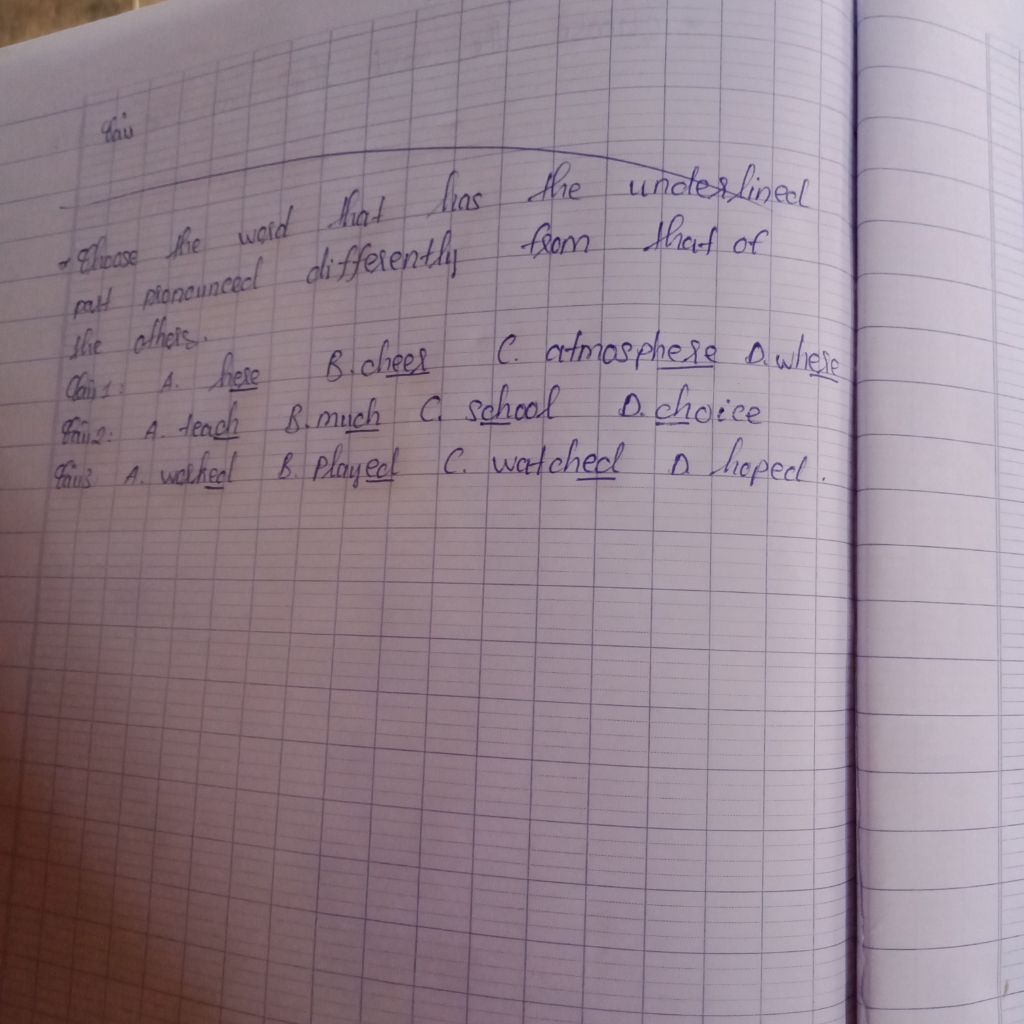 Câu
- Choose the word that has the underlined
part pronounced differently from that of
the others.
Câu 1: A. here B. cheer C. atmosphere D. where
Câu 2: A. teach B. much C. school D. choice
Câu 3 A. walked B. played C. watched D hoped.